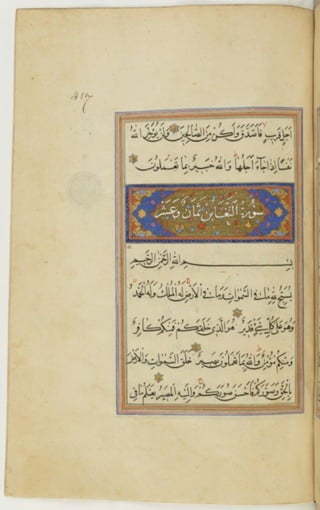 أَجَلٍ قَرِيبٍ فَأَصَّدَّقَ وَأَكُنْ مِنَ الصَّالِحِينَ وَلَنْ يُؤَخِّرَ اللهُ
نَفْسًا إِذَا جَاءَ أَجَلُهَا وَاللهُ خَبِيرٌ بِمَا تَعْمَلُونَ
سورة التغابن ثمان وعشر
بِسْمِ اللهِ الرَّحْمٰنِ الرَّحِيمِ
يُسَبِّحُ لِلهِ مَا فِي السَّمٰوَاتِ وَمَا فِي الْأَرْضِ لَهُ الْمُلْكُ وَلَهُ الْحَمْدُ
وَهُوَ عَلَى كُلِّ شَيْءٍ قَدِيرٌ هُوَ الَّذِي خَلَقَكُمْ فَمِنْكُمْ كَافِرٌ
وَمِنْكُمْ مُؤْمِنٌ وَاللهُ بِمَا تَعْمَلُونَ بَصِيرٌ خَلَقَ السَّمٰوَاتِ وَالْأَرْضَ
بِالْحَقِّ وَصَوَّرَكُمْ فَأَحْسَنَ صُوَرَكُمْ وَإِلَيْهِ الْمَصِيرُ يَعْلَمُ مَا فِي